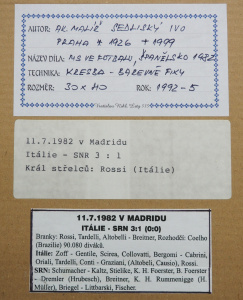 AUTOR: AK. MALÍŘ SEDLISKÝ IVO
PRAHA * 1926 + 1999
NÁZEV DÍLA: MS VE FOTBALU, ŠPANĚLSKO 1982
TECHNIKA: KRESBA - BAREVNÉ FIXY
ROZMĚR: 30 x 40 ROK: 1992-5
11.7.1982 v Madridu
Itálie - SNR 3 : 1
Král střelců: Rossi (Itálie)
11.7.1982 V MADRIDU
ITÁLIE - SRN 3:1 (0:0)
Branky: Rossi, Tardelli, Altobelli - Breitner, Rozhodčí: Coelho
(Brazílie) 90.080 diváků.
Itálie: Zoff - Gentile, Scirea, Collovatti, Bergomi - Cabrini,
Oriali, Tardelli, Conti - Graziani, (Altobelli, Causio), Rossi.
SRN: Schumacher - Kaltz, Stielike, K. H. Foerster, B. Foerster
- Dremler (Hrubesch), Breitner, K. H. Rummenigge (H.
Müller), Briegel - Littbarski, Fischer.